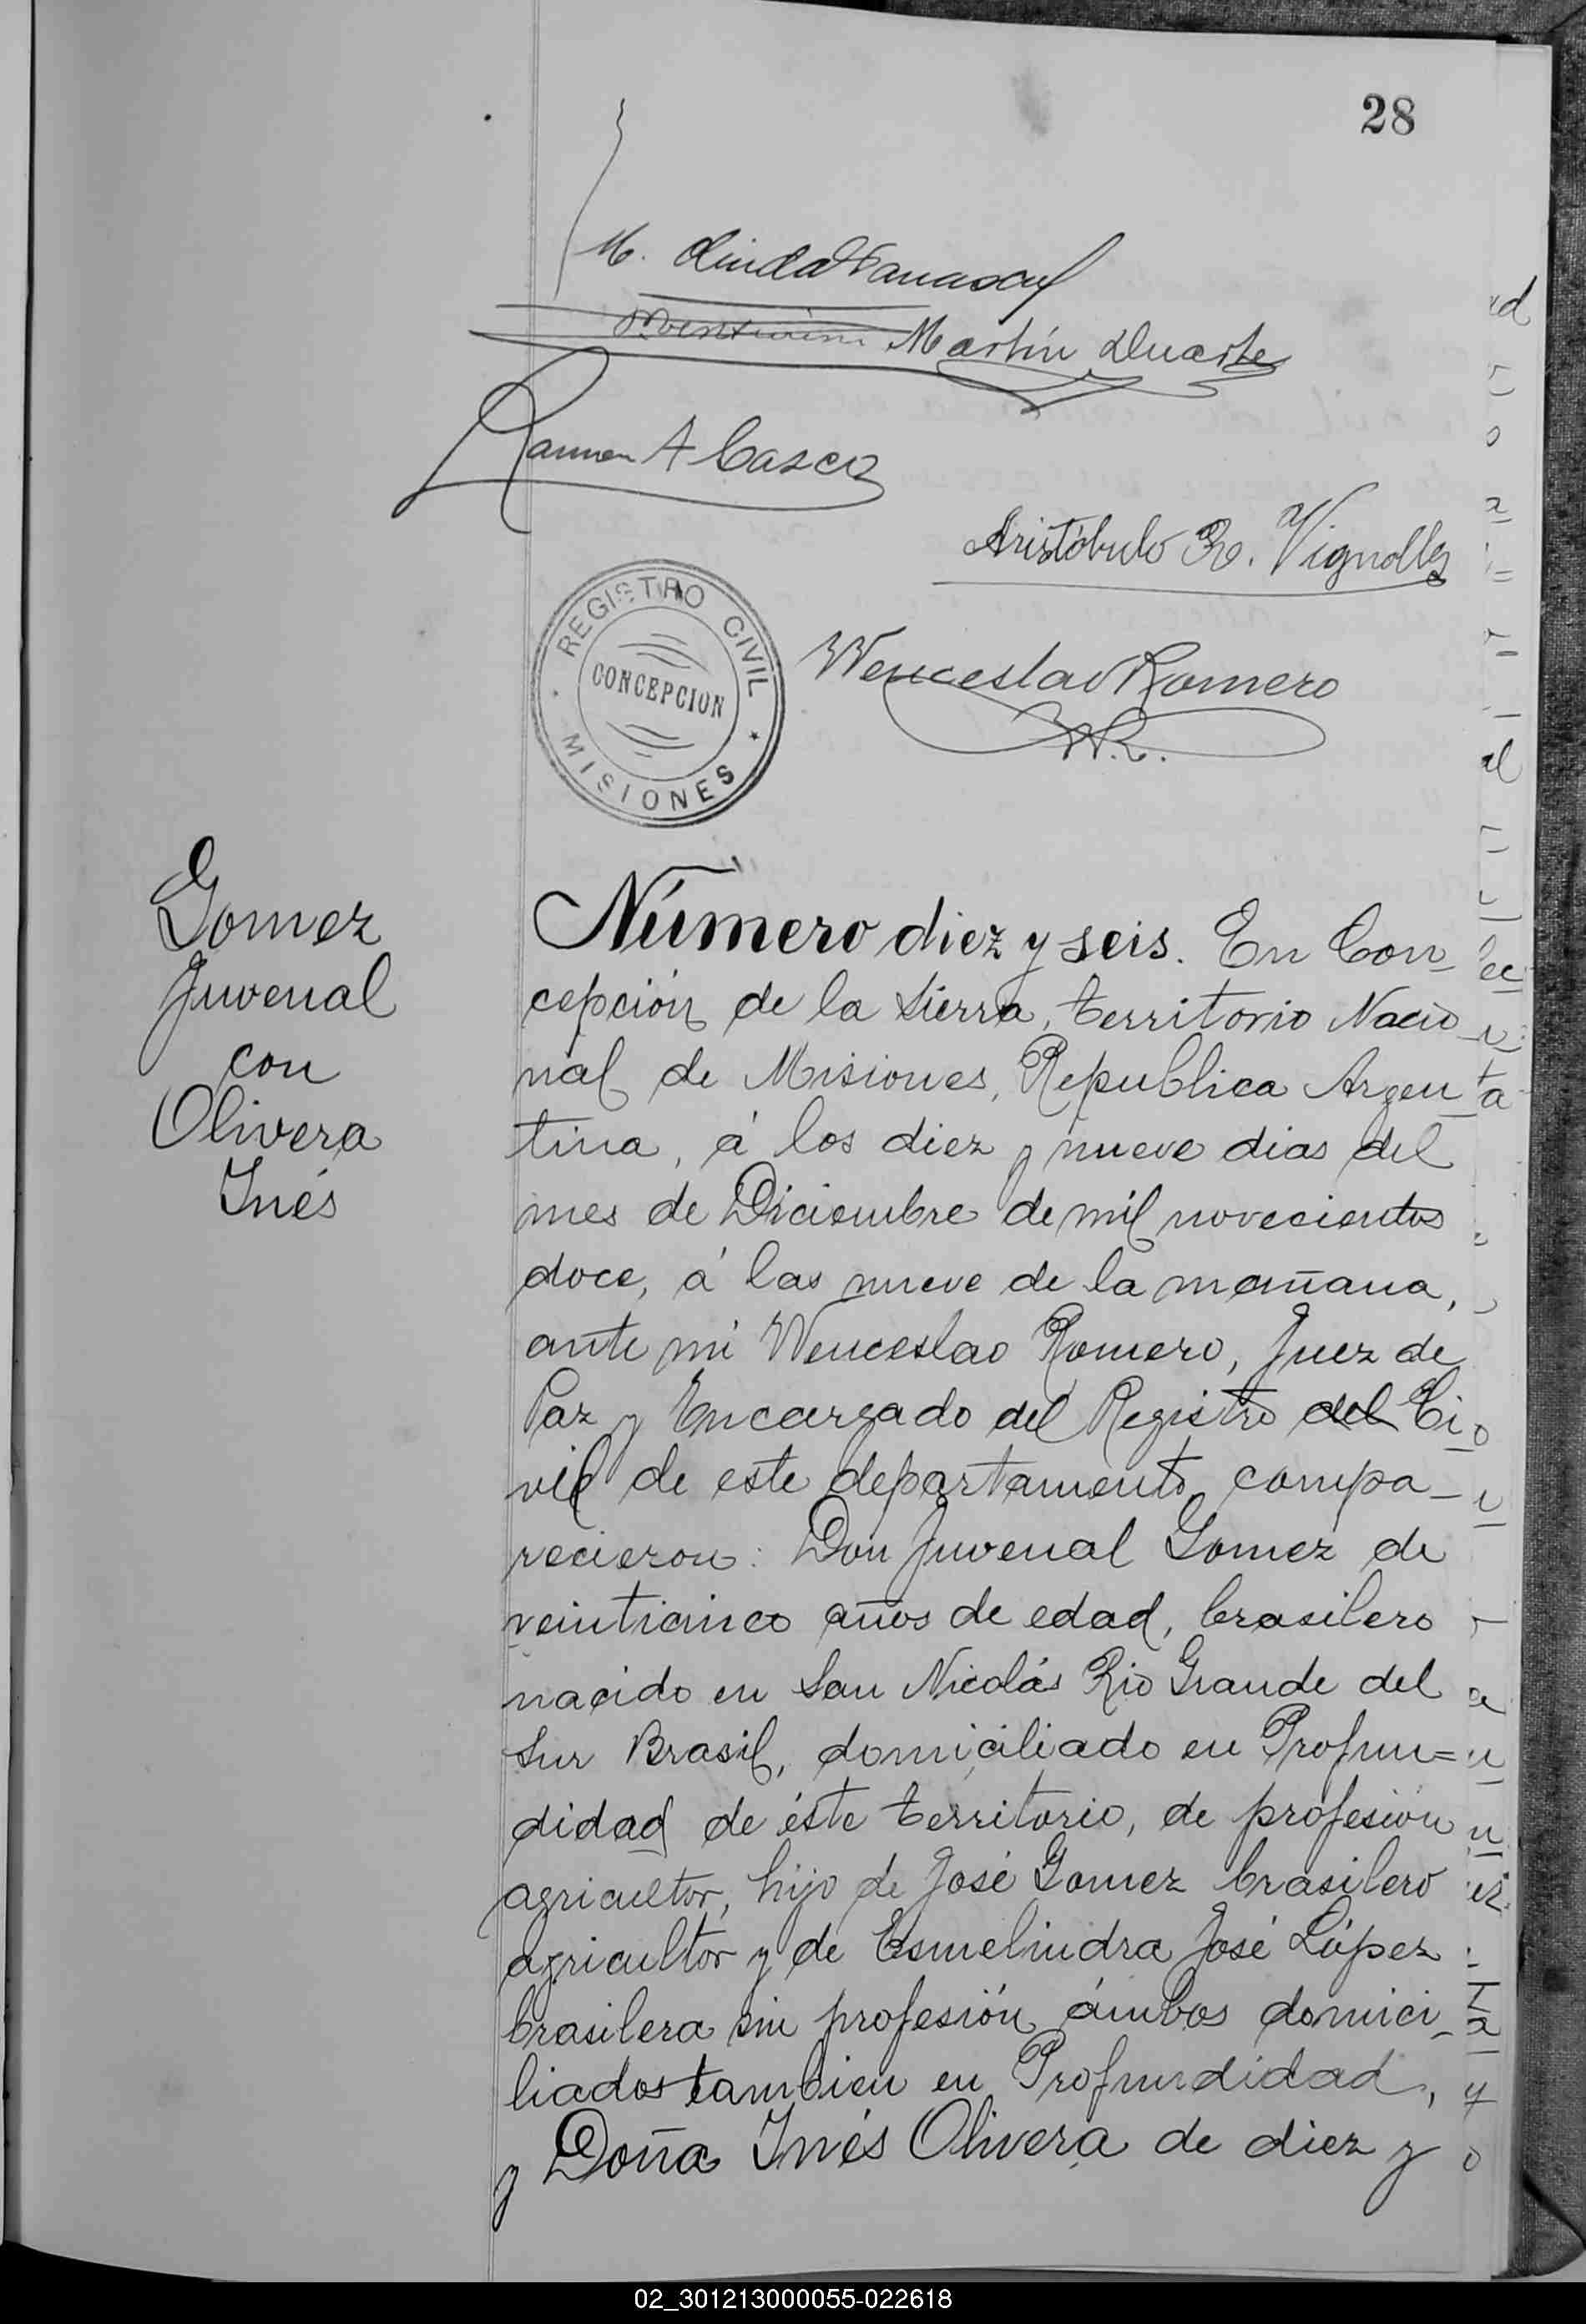 28
M.
Martín Duarte
Ramon A Casco
Aristóbulo R. Vignolles
REGISTRO CIVIL
CONCEPCION
MISIONES
Wenceslao Romero
W.R.
Gomez
Juvenal
con
Olivera
Inés
Número diez y seis. En Con-
cepción de la Sierra, territorio Nacio-
nal de Misiones, Republica Argen-
tina, á los diez y nueve dias del
mes de Diciembre de mil novecientos
doce, á las nueve de la mañana,
ante mi Wenceslao Romero, Juez de
Paz y Encargado del Registro del Ci-
vil de este departamento, compa-
recieron: Don Juvenal Gomez de
veinticinco años de edad, brasilero
nacido en San Nicolás Rio Grande del
Sur Brasil, domiciliado en Profun=
didad de éste territorio, de profesion
agricultor, hijo de José Gomez brasilero
agricultor y de Esmelindra José López
brasilera sin profesión ámbos domici-
liados tambien en Profundidad,
y Doña Inés Olivera de diez y
02_301213000055-022618